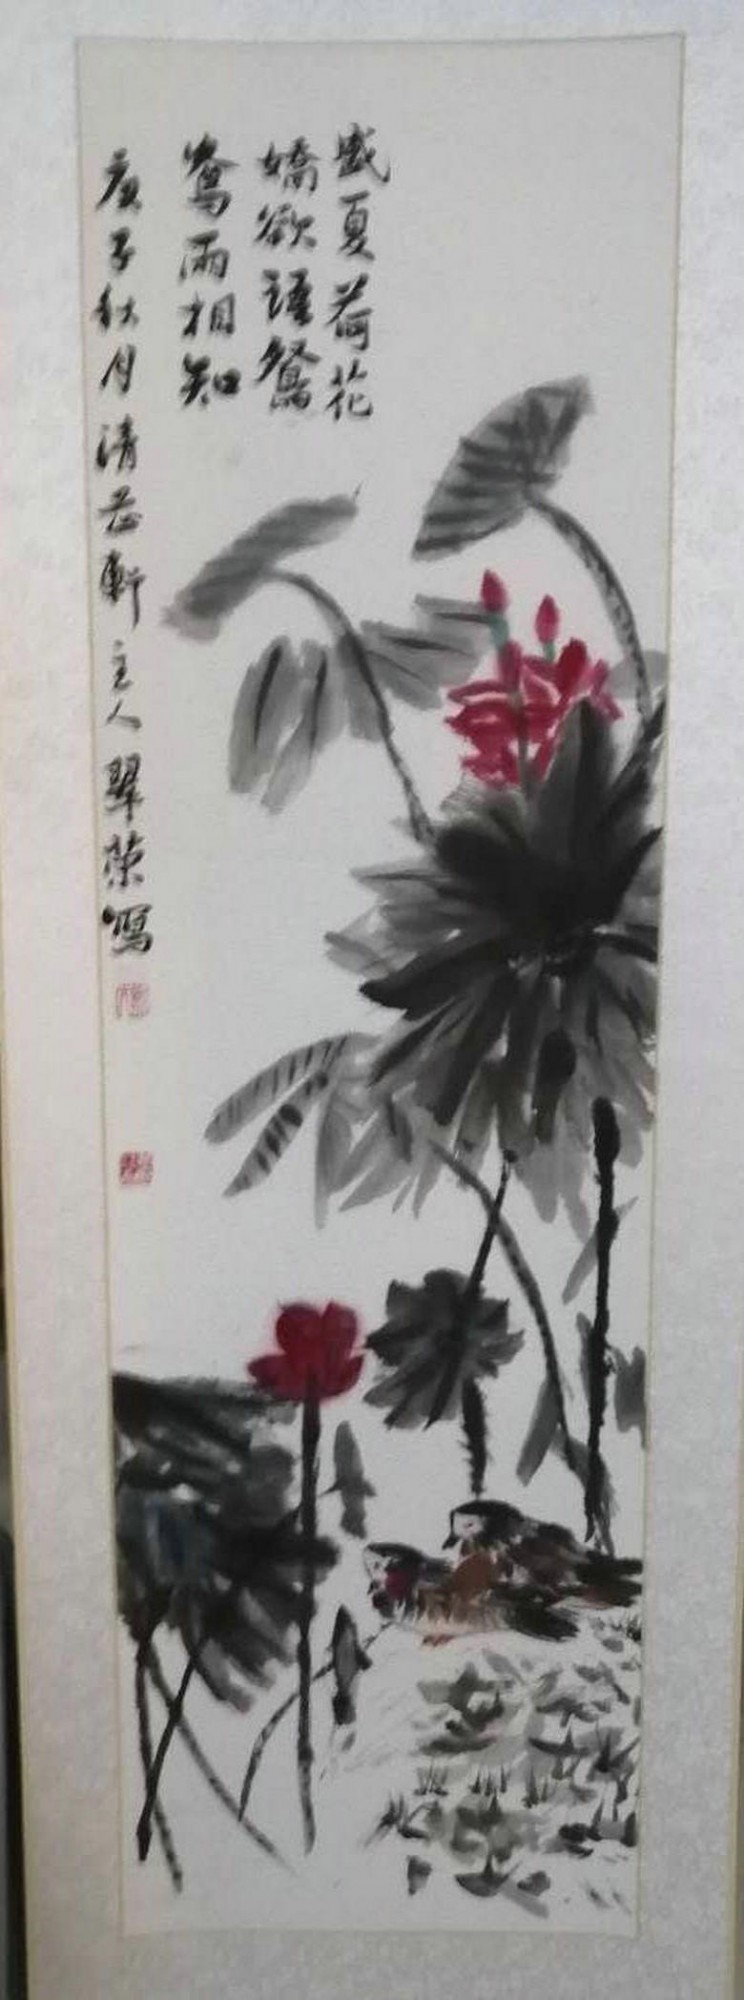 盛夏荷花
嬌欲語鴛
鴦兩相知
庚子秋月清芯軒主人翠荣寫